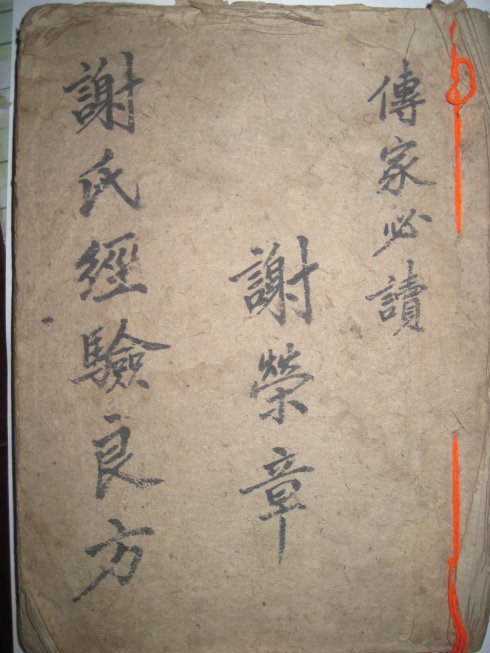 傳家必讀
謝榮章
謝氏經驗良方